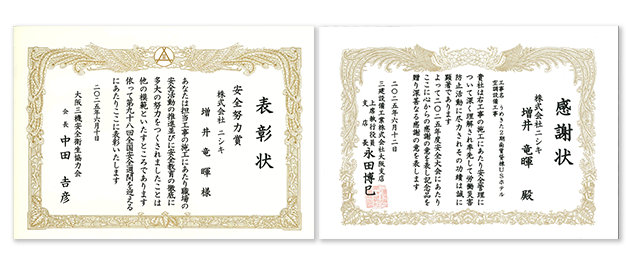 表彰状
安全努力賞
株式会社ニシキ
増井竜暉様
あなたは担当工事の施工にあたり職場の
安全活動の推進並びに安全教育の徹底に
多大の努力をつくされましたことは
他の模範といたすところであります
依って第九十八回全国安全週間を迎える
にあたりここに表彰いたします
二〇二五年六月十日
大阪三機安全衛生協力会
会長 中田吉彦
感謝状
工事名 うめきた2期南賃貸棟USホテル
空調設備工事
株式会社ニシキ
増井竜暉 殿
貴社は右工事の施工にあたり安全管理に
ついて深く理解され率先して労働災害
防止活動に尽力されその功績は誠に
顕著であります
よって二〇二五年度安全大会にあたり
ここに心からの感謝の意を表し記念品を
贈り深甚なる感謝の意を表します
二〇二五年六月十二日
三建設備工業株式会社大阪支店
上席執行役員
支店長 永田博巳